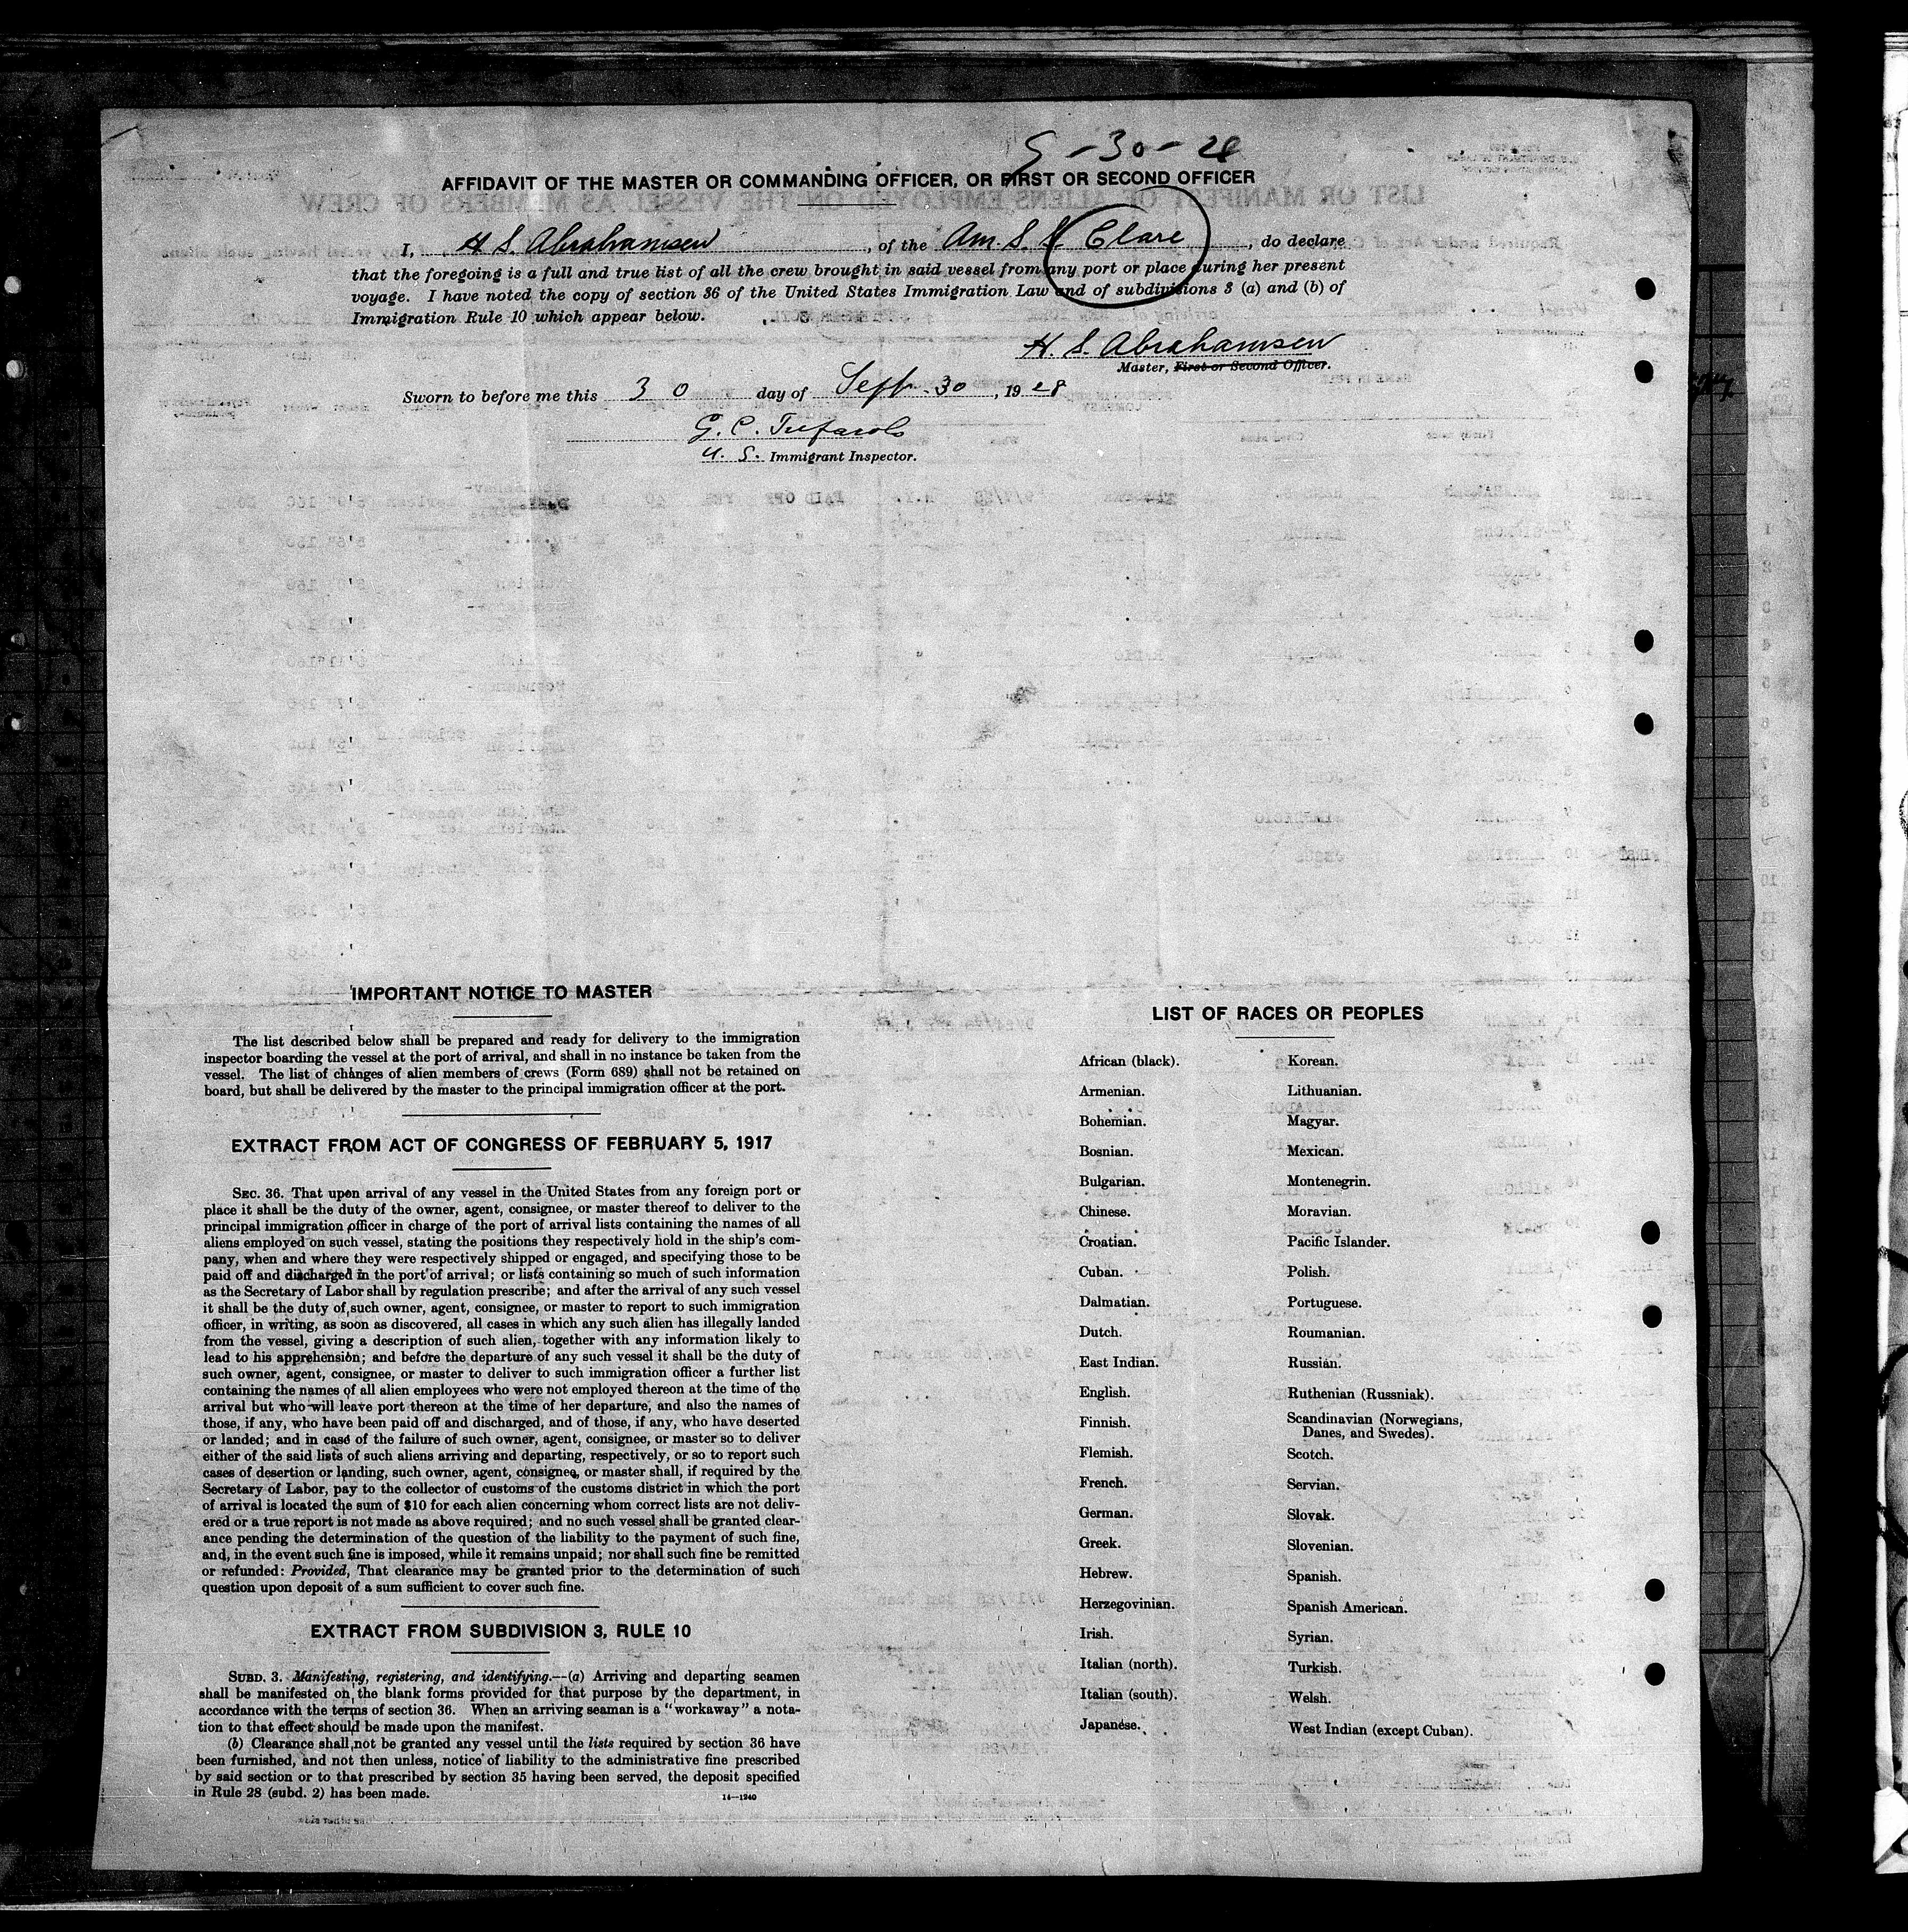 9-30-28
AFFIDAVIT OF THE MASTER OR COMMANDING OFFICER, OR FIRST OR SECOND OFFICER
I, H. S. Abrahamsen, of the Am. S. S. Clare, do declare
that the foregoing is a full and true list of all the crew brought in said vessel from any port or place during her present
voyage. I have noted the copy of section 36 of the United States Immigration Law and of subdivisions 3 (a) and (b) of
Immigration Rule 10 which appear below.
H. S. Abrahamsen
Master, First or Second Officer.
Sworn to before me this 30 day of Sept. 30, 1928
G. C.
U. S. Immigrant Inspector.
IMPORTANT NOTICE TO MASTER
The list described below shall be prepared and ready for delivery to the immigration
inspector boarding the vessel at the port of arrival, and shall in no instance be taken from the
vessel. The list of changes of alien members of crews (Form 689) shall not be retained on
board, but shall be delivered by the master to the principal immigration officer at the port.
EXTRACT FROM ACT OF CONGRESS OF FEBRUARY 5, 1917
SEC. 36. That upon arrival of any vessel in the United States from any foreign port or
place it shall be the duty of the owner, agent, consignee, or master thereof to deliver to the
principal immigration officer in charge of the port of arrival lists containing the names of all
aliens employed on such vessel, stating the positions they respectively hold in the ship's com-
pany, when and where they were respectively shipped or engaged, and specifying those to be
paid off and discharged in the port of arrival; or lists containing so much of such information
as the Secretary of Labor shall by regulation prescribe; and after the arrival of any such vessel
it shall be the duty of such owner, agent, consignee, or master to report to such immigration
officer, in writing, as soon as discovered, all cases in which any such alien has illegally landed
from the vessel, giving a description of such alien, together with any information likely to
lead to his apprehension; and before the departure of any such vessel it shall be the duty of
such owner, agent, consignee, or master to deliver to such immigration officer a further list
containing the names of all alien employees who were not employed thereon at the time of the
arrival but who will leave port thereon at the time of her departure, and also the names of
those, if any, who have been paid off and discharged, and of those, if any, who have deserted
or landed; and in case of the failure of such owner, agent, consignee, or master so to deliver
either of the said lists of such aliens arriving and departing, respectively, or so to report such
cases of desertion or landing, such owner, agent, consignee, or master shall, if required by the
Secretary of Labor, pay to the collector of customs of the customs district in which the port
of arrival is located the sum of $10 for each alien concerning whom correct lists are not deliv-
ered or a true report is not made as above required; and no such vessel shall be granted clear-
ance pending the determination of the question of the liability to the payment of such fine,
and, in the event such fine is imposed, while it remains unpaid; nor shall such fine be remitted
or refunded: Provided, That clearance may be granted prior to the determination of such
question upon deposit of a sum sufficient to cover such fine.
EXTRACT FROM SUBDIVISION 3, RULE 10
SUBD. 3. Manifesting, registering, and identifying.—(a) Arriving and departing seamen
shall be manifested on the blank forms provided for that purpose by the department, in
accordance with the terms of section 36. When an arriving seaman is a "workaway" a nota-
tion to that effect should be made upon the manifest.
(b) Clearance shall not be granted any vessel until the lists required by section 36 have
been furnished, and not then unless, notice of liability to the administrative fine prescribed
by said section or to that prescribed by section 35 having been served, the deposit specified
in Rule 28 (subd. 2) has been made.
14—1240
LIST OF RACES OR PEOPLES
African (black).
Armenian.
Bohemian.
Bosnian.
Bulgarian.
Chinese.
Croatian.
Cuban.
Dalmatian.
Dutch.
East Indian.
English.
Finnish.
Flemish.
French.
German.
Greek.
Hebrew.
Herzegovinian.
Irish.
Italian (north).
Italian (south).
Japanese.
Korean.
Lithuanian.
Magyar.
Mexican.
Montenegrin.
Moravian.
Pacific Islander.
Polish.
Portuguese.
Roumanian.
Russian.
Ruthenian (Russniak).
Scandinavian (Norwegians,
Danes, and Swedes).
Scotch.
Servian.
Slovak.
Slovenian.
Spanish.
Spanish American.
Syrian.
Turkish.
Welsh.
West Indian (except Cuban).